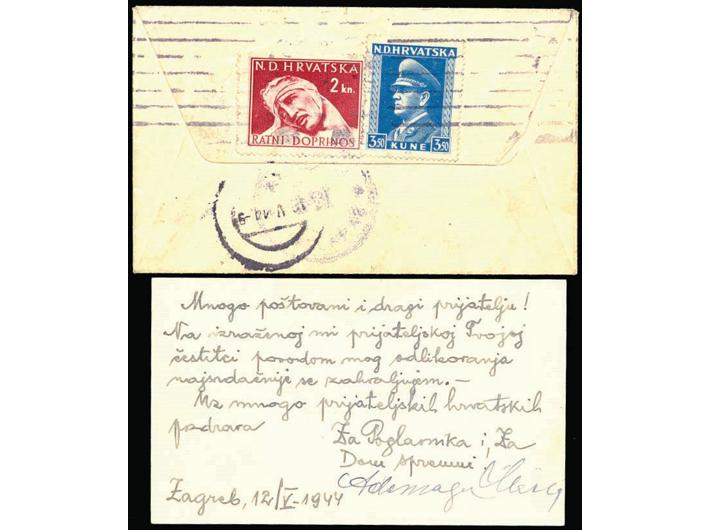 N.D. HRVATSKA
2 kn.
RATNI DOPRINOS
N.D.HRVATSKA
3.50 KUNE 3.50
Mnogo poštovani i dragi prijatelju!
Na izraženoj mi prijateljskoj Tvojoj
čestitci povodom mog odlikovanja
najsrdačnije se zahvaljujem.—
Uz mnogo prijateljskih hrvatskih
pozdrava
Za Poglavnika i Za
Dom spremni!
Zagreb, 12/V-1944